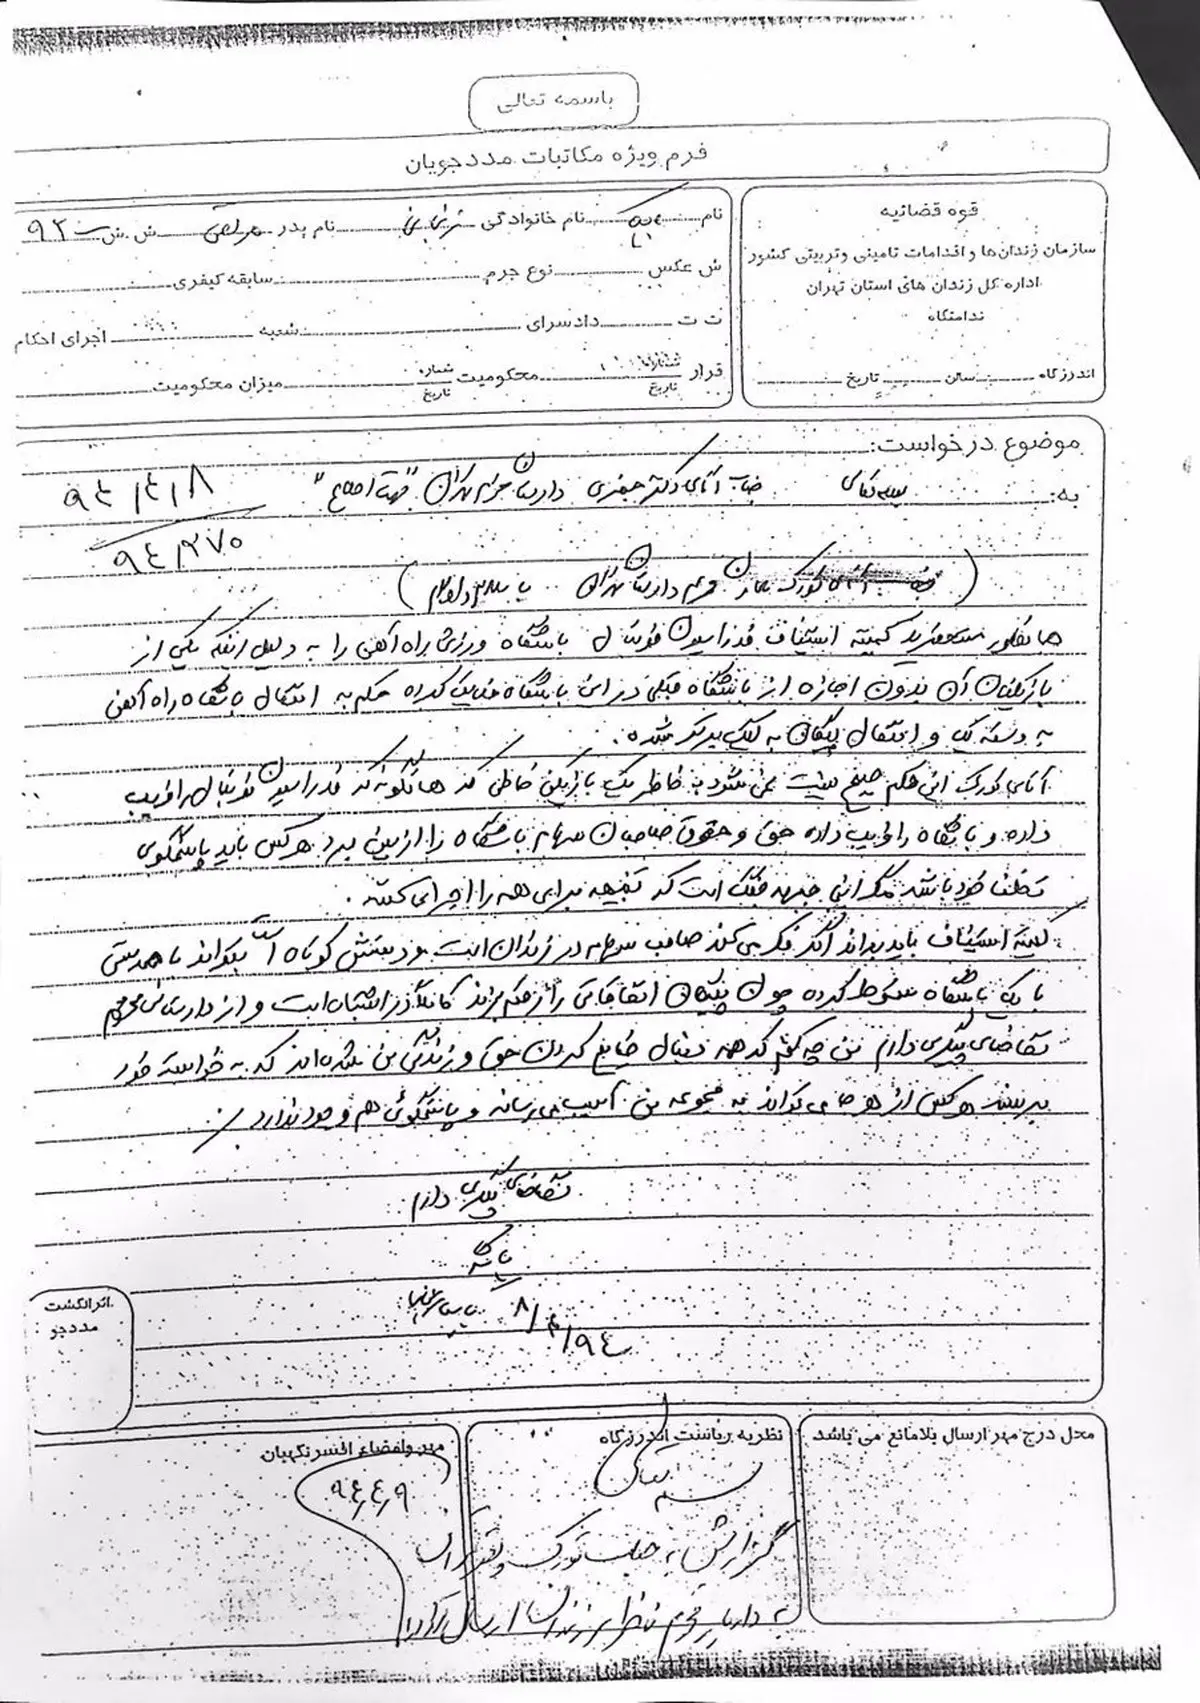 باسمه تعالی
فرم ویژه مکاتبات مددجویان
قوه قضائیه
سازمان زندان‌ها و اقدامات تامینی و تربیتی کشور
اداره کل زندان های استان تهران
ندامتگاه
اندرزگاه ... سالن ... تاریخ
نام بابک نام خانوادگی زنجانی نام پدر مرتضی ش ش ۹۲
ش عکس نوع جرم سابقه کیفری
ت ت دادسرای شعبه اجرای احکام
قرار شماره تاریخ محکومیت شماره تاریخ میزان محکومیت
موضوع درخواست:
به: بسمه تعالی جناب آقای دکتر جعفری دادستان محترم تهران "جهت اطلاع"
۹۴/۴/۸
۹۴/۲۷۰
معاون محترم دادستان تهران با سلام و احترام
همانطور مستحضرید کمیته استیناف فدراسیون فوتبال باشگاه ورزشی راه آهن را به دلیل اینکه یکی از
بازیکنان آن بدون اجازه از باشگاه قبلی در این باشگاه فعالیت کرده حکم به انتقال باشگاه راه آهن
به دسته یک و انتقال پیکان به لیگ برتر شده.
آقای تورک این حکم صحیح نیست نمی شود به خاطر یک بازیکن خاطی که همانگونه که فدراسیون فوتبال را فریب
داده و باشگاه را فریب داده حق و حقوق صاحبان سهام باشگاه را از بین برد هر کس باید پاسخگوی
تخلف خود باشد مگر این جبهه جنگ است که تنبیه برای همه را اجرا می کنند.
کمیته استیناف باید بداند اگر فکر می کند صاحب سهام در زندان است و دستش کوتاه است بتواند با همدستی
با یک باشگاه سقوط کرده چون پیکان کاملاً در اشتباه است و از دادستانی محترم
تقاضای پیگیری دارم من چه کنم که همه دنبال ضایع کردن حق و زندگی من شده اند که به خواسته خود
برسند هر کس از هر جا می تواند به مجموعه من آسیب می رساند و پاسخگوئی هم وجود ندارد.
تقاضای پیگیری دارم
با تشکر
۹۴/۴/۸
اثر انگشت
مددجو
محل درج مهر ارسال بلامانع می باشد
نظریه ریاست اندرزگاه
مهر و امضاء افسر نگهبان
۹۴/۴/۹
گزارش به جناب تورک و
به دادیار محترم ناظر زندان ارسال گردد